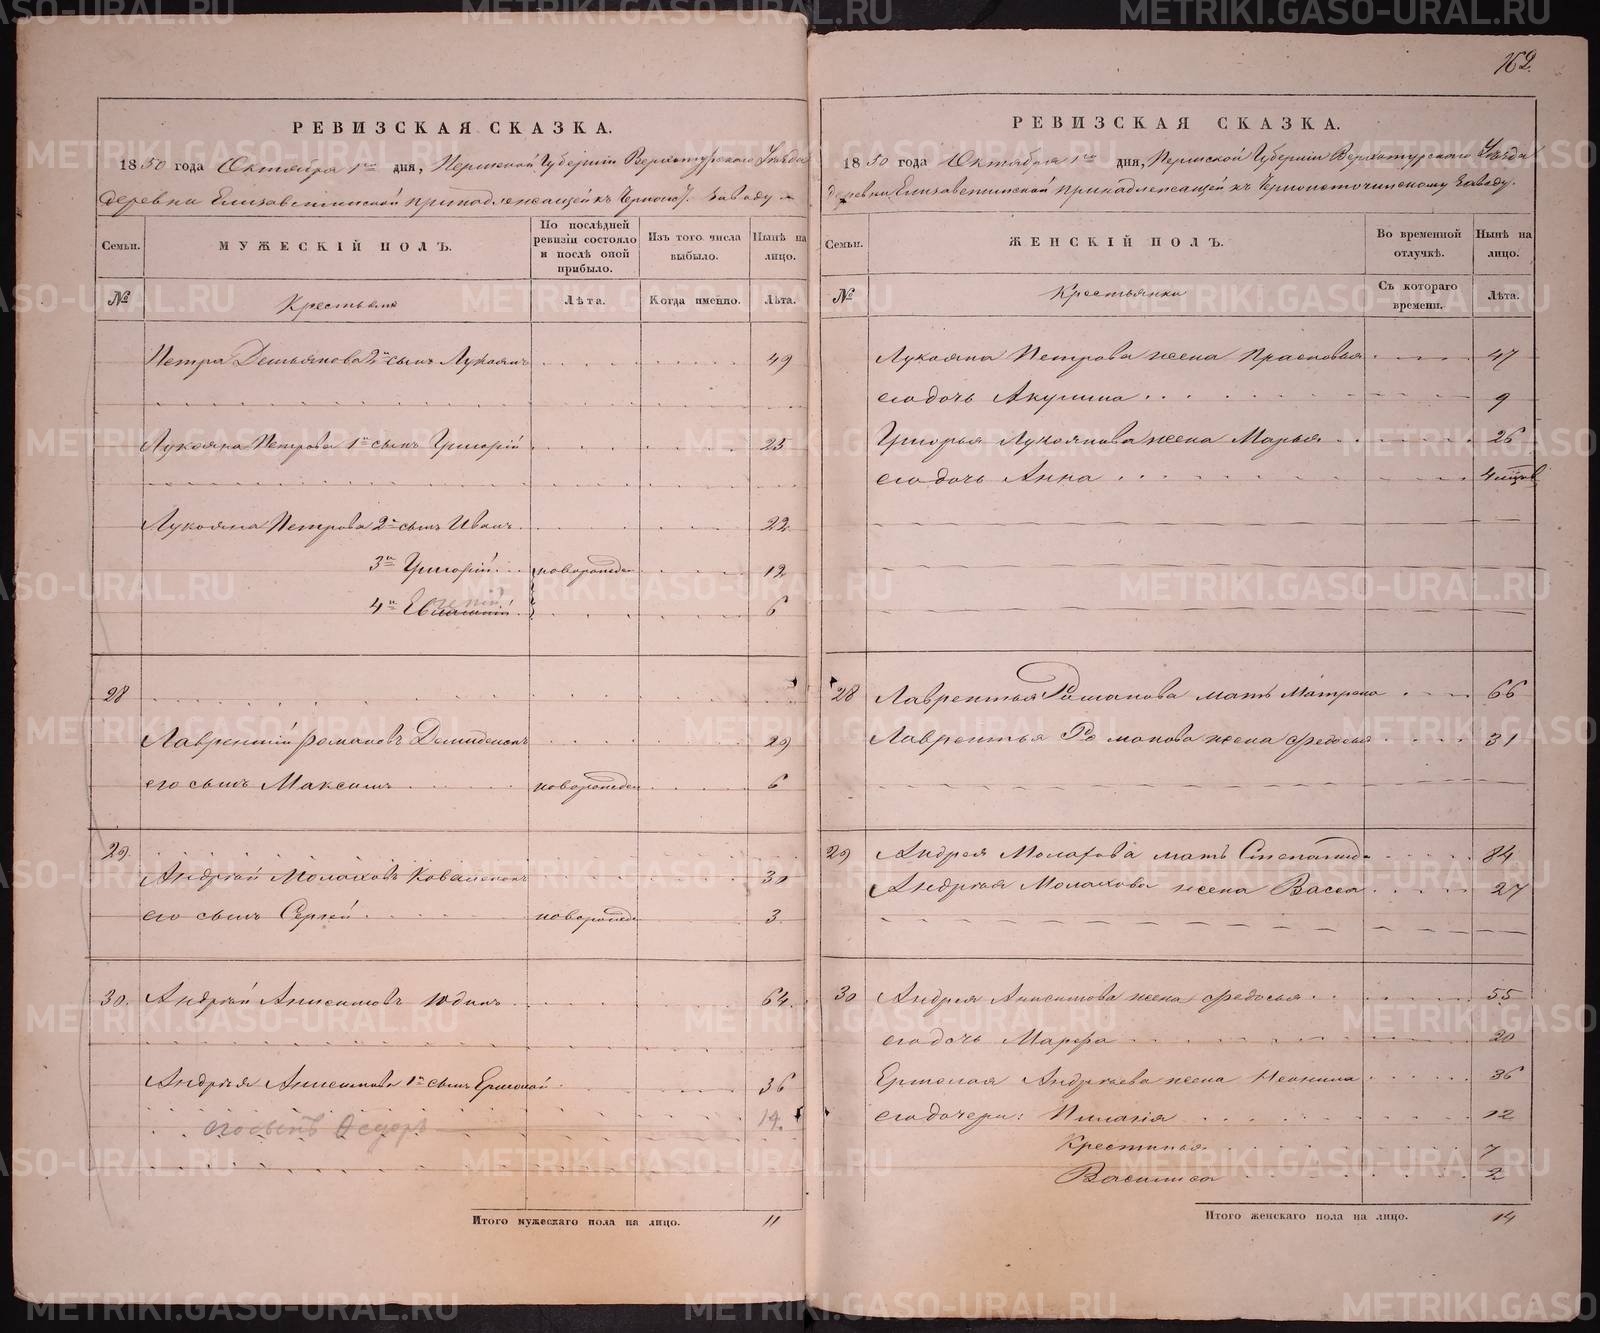 162.
РЕВИЗСКАЯ СКАЗКА.
1850 года Октября 1го дня, Пермской Губернии Верхотурскаго Уѣзда
деревни Елизаветинской принадлежащей къ Черноис. заводу
Семьи.
МУЖЕСКІЙ ПОЛЪ.
По послѣдней ревизіи состояло и послѣ оной прибыло.
Изъ того числа выбыло.
Нынѣ на лицо.
№
Крестьяне
Лѣта.
Когда именно.
Лѣта.
Петра Демьянова 2й сынъ Лукоянъ 49
Лукояна Петрова 1й сынъ Григорій 25
Лукояна Петрова 2й сынъ Иванъ 22
3й Григорій новорожден 12
4й 6
28
Лаврентій Романовъ Демиденокъ 29
его сынъ Максимъ новорожден 6
29.
Андрей Молаховъ Коваленокъ 31
его сынъ Сергей новорожд 3.
30. Андрей Анисимовъ Юдинъ 64.
Андрея Анисимова 1й сынъ Ермолай 36
его сынъ Ѳедоръ 14.
Итого мужескаго пола на лицо. 11
РЕВИЗСКАЯ СКАЗКА.
1850 года Октября 1го дня, Пермской Губерніи Верхотурскаго Уѣзда
деревни Елизаветинской принадлежащей къ Черноисточинскому заводу.
Семьи.
ЖЕНСКІЙ ПОЛЪ.
Во временной отлучкѣ.
Нынѣ на лицо.
№
Крестьянки
Съ котораго времени.
Лѣта.
Лукояна Петрова жена Прасковья 47
его дочь Акулина 9
Григорья Лукоянова жена Марья 26
его дочь Анна 4 мѣсяцов
28 Лаврентья Романова мать Матрена 66
Лаврентья Романова жена Федосья 31
29 Андрея Молахова мать Степанида 84
Андрея Молахова жена Васса 27
30 Андрея Анисимова жена Федосья 55
его дочь Марфа 20
Ермолая Андреева жена Неонила 36
его дочери: Пилагія 12
Крестинья 7
Василиса 2
Итого женскаго пола на лицо. 14
METRIKI.GASO-URAL.RU